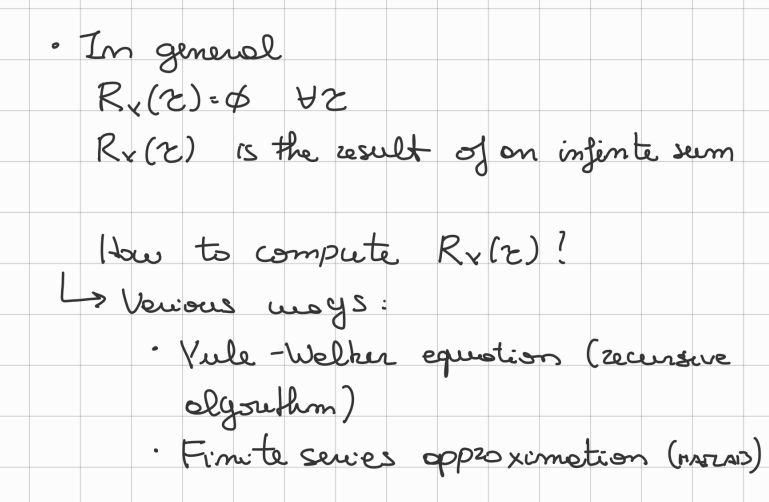 • In general
Rᵧ(τ)=ϕ ∀τ
Rᵧ(τ) is the result of an infinite sum
How to compute Rᵧ(τ)?
↳ Various ways:
• Yule-Walker equation (recursive
algorithm)
• Finite series approximation (MATLAB)